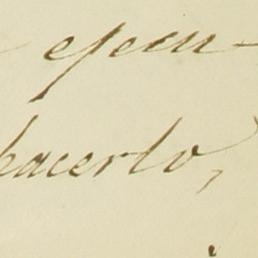 ejecu-
hacerlo,